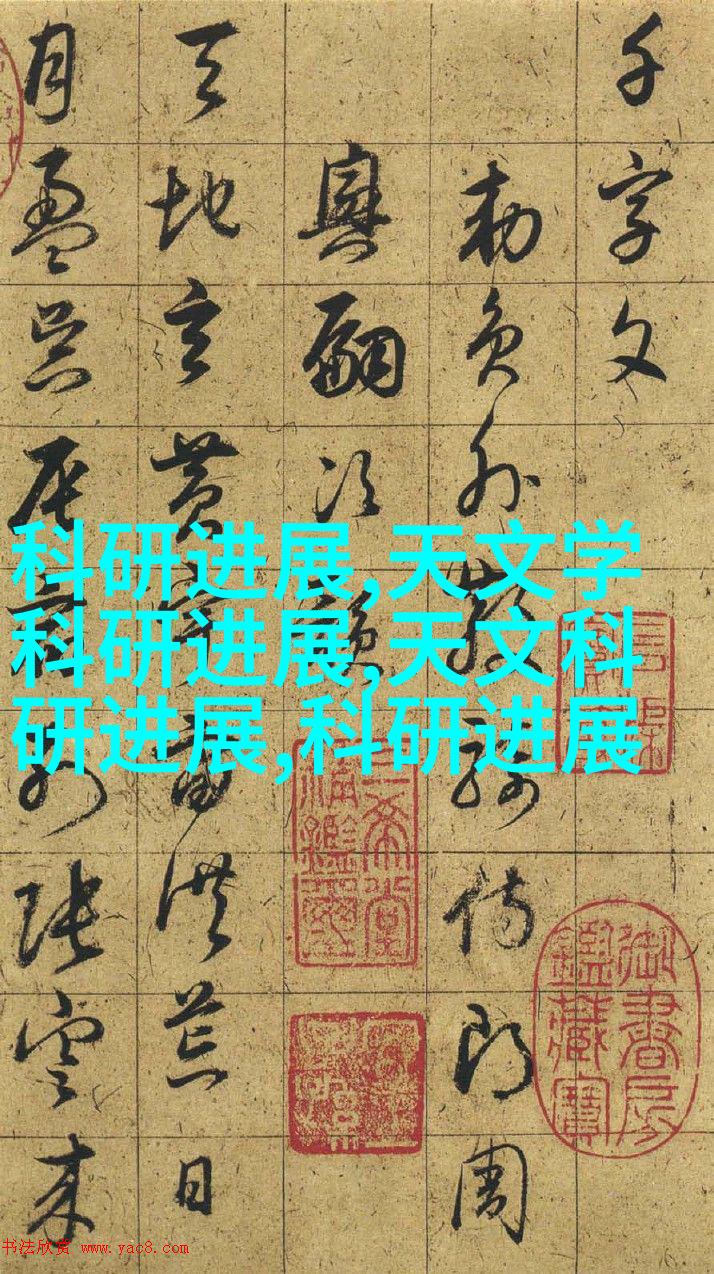 千字文
勑員外散騎侍郎周
興嗣次韻
天地玄黄宇宙洪荒日
月盈昃辰宿列張寒来
科研进展,天文学
科研进展,天文科
研进展,科研进展
三希堂
精鑑璽
御書房
鑑藏寶
书法欣赏 www.yac8.com